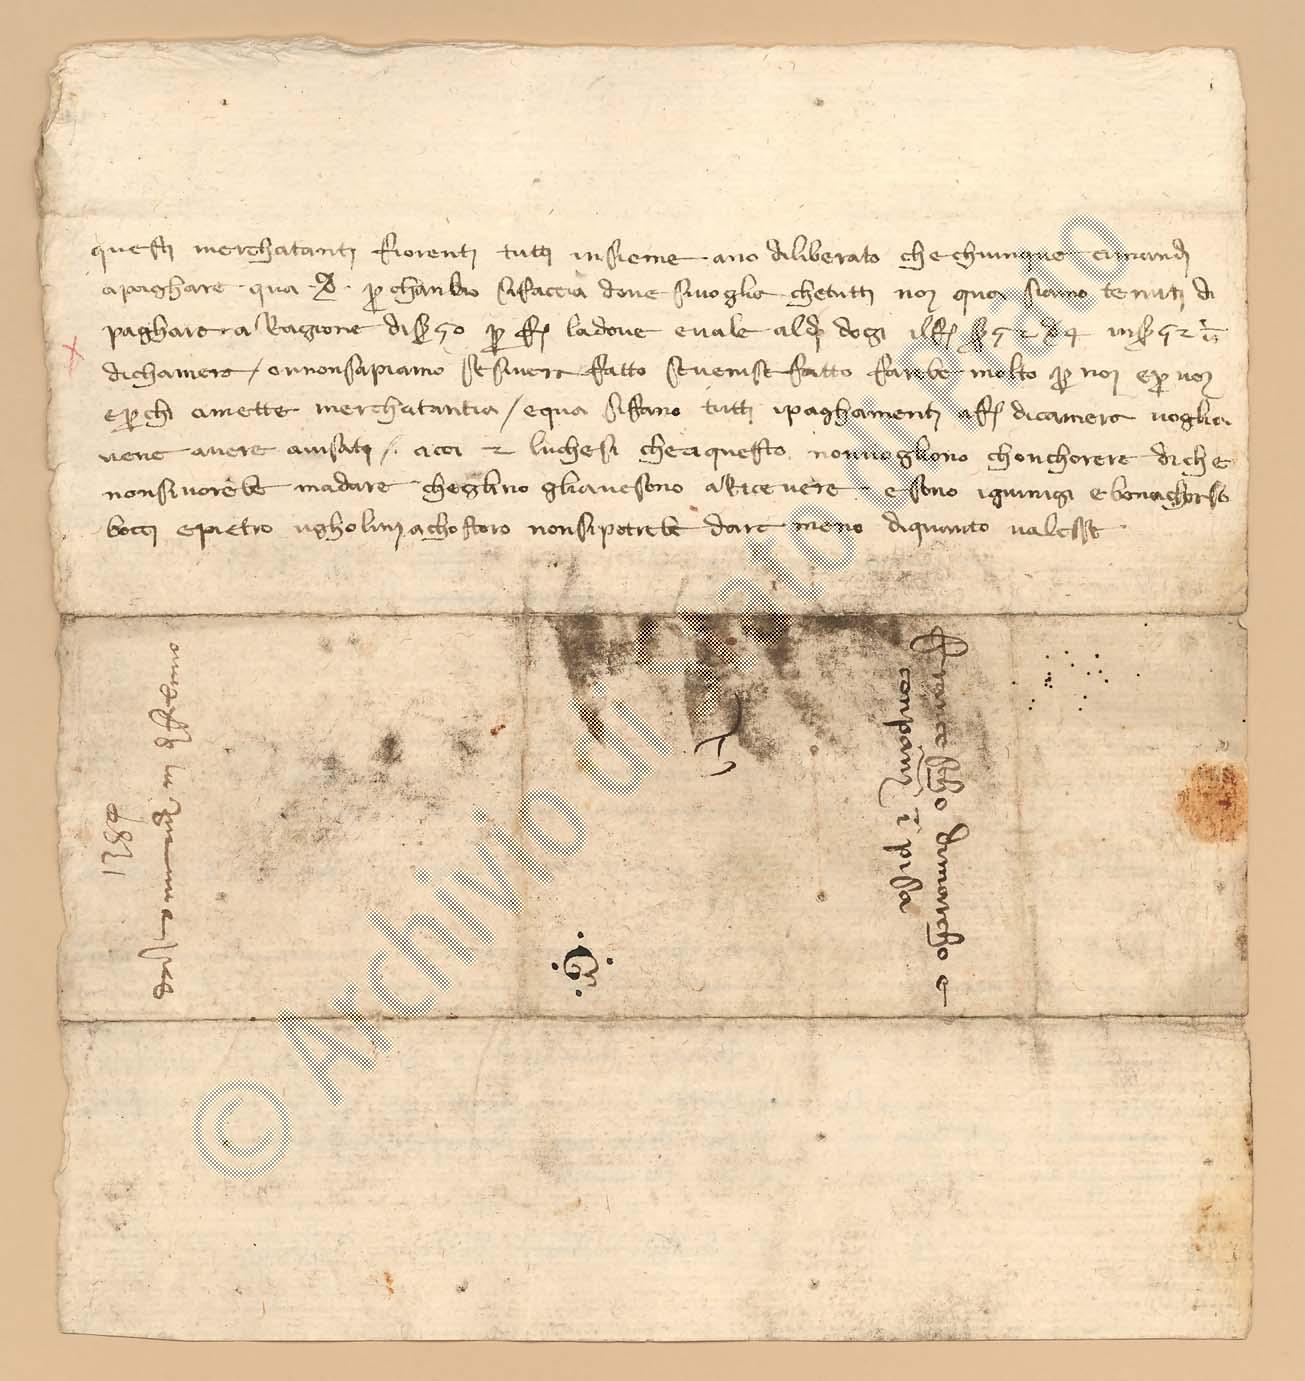 questi merchatanti fiorenti tutti insieme ano diliberato che chiunque ci mandj
a paghare qua per chanbio si faccia dove si voglia che tutti noi qua siamo tenuti di
paghare a ragione di 50 per fj la dove e vale al dogi il fj 52 4 in 52
di chamera / or non sapiamo se si vera fatto se venise fatto farebe molto per noi e per voi
e per chi ci mette merchatantia / e qua si fano tutti i paghamenti a fj di camera voglia
vene avere avisati /. acci luchesi che a questo non vogliono chonchorere di che
non si vorebe mādare che glino gli avesono a ricevere e sono i guinigi e bonachorso
bocci e pietro ugholinj a chostoro non si potrebe dare meno di quanto valesse
Francescho di marcho e
conpangni ī pisa
1389
da Vinegia
© Archivio di Stato di Prato